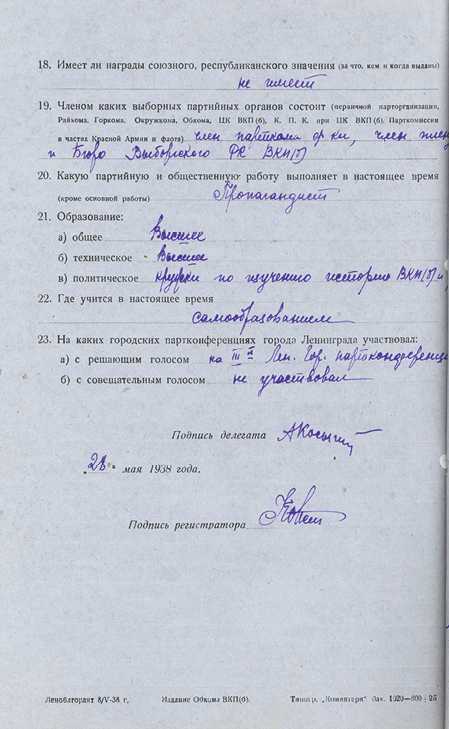 18. Имеет ли награды союзного, республиканского значения (за что, кем и когда выданы)
не имеет
19. Членом каких выборных партийных органов состоит (первичная парторганизация,
Райкома, Горкома, Окружкома, Обкома, ЦК ВКП(б), К. П. К. при ЦК ВКП(б), Парткомиссии
в частях Красной Армии и флота) член парткома ф-ки, член плен
и Бюро Выборгского РК ВКП(б)
20. Какую партийную и общественную работу выполняет в настоящее время
(кроме основной работы) Пропагандист
21. Образование:
а) общее Высшее
б) техническое Высшее
в) политическое кружки по изучению истории ВКП(б) и
22. Где учится в настоящее время
самообразованием
23. На каких городских партконференциях города Ленинграда участвовал:
а) с решающим голосом на III й Лен. Гор. партконференци
б) с совещательным голосом не участвовал
Подпись делегата АКосыгин
"28" мая 1938 года.
Подпись регистратора
Леноблгорлит 8/V-38 г. Издание Обкома ВКП(б). Типогр. „Коминтерн" Зак. 1020—800